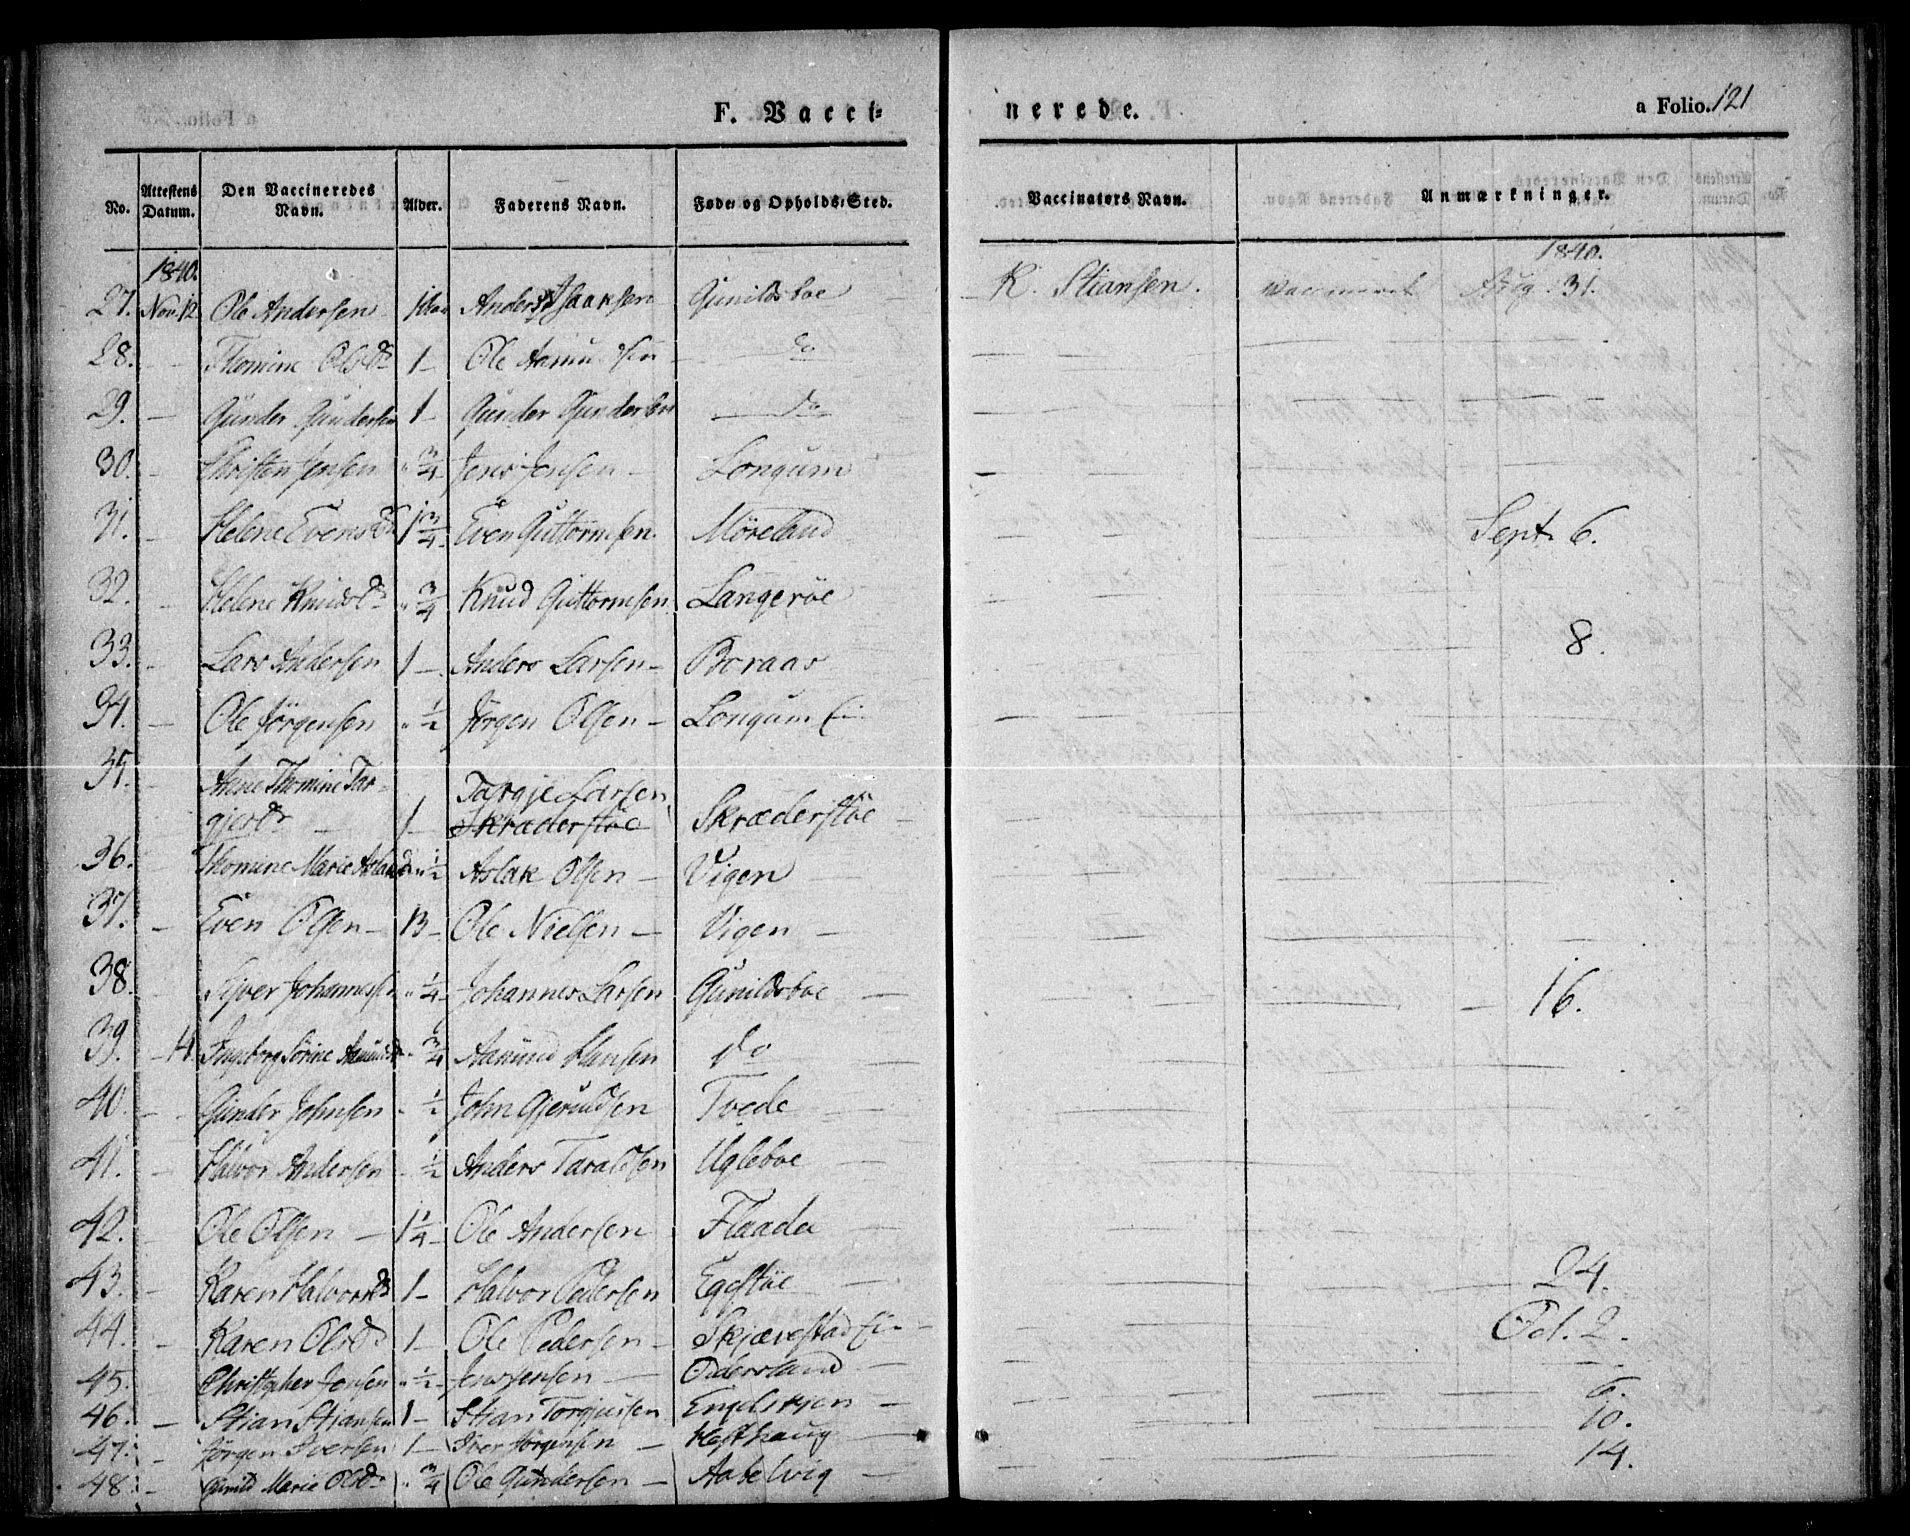 F. Vacci-
nerede.
a Folio. 121
No.
Attestens Datum.
Den Vaccineredes Navn.
Alder.
Faderens Navn.
Føde- og Opholds-Sted.
Vaccinators Navn.
Anmærkninger.
1840.
1840.
27. Nov. 12 Ole Andersen 1 Anders Isaaksen Gunildsboe — R. Stiansen. vaccineret Aug. 31.
28. — — Thomine Olsdr 1 — Ole — do
29. — Gunder Gundersen 1 — Gunder Gundersen — do
30. — Christen Jensen " 3/4 Jens Jensen — Longum —
31. — Helene Evensdr 1 3/4 Even Guttormsen. Møreland Sept. 6.
32. — Helene Knudsdr " 3/4 Knud Guttormsen Langerøe —
33. — Lars Andersen 1 — Anders Larsen — Boraas 8.
34. — Ole Jörgensen " 1/2 Jörgen Olsen — Longum Ei.
35. Anne Thomine Tar-
gjersdr — 1 — Targje Larsen Skræderstöe —
Skræderstöe
36. Thomine Marie " 1/2 Aslak Olsen — Vigen —
37. — Even Olsen — 13 — Ole Nielsen — Vigen —
38. — Johannessen " 1/4 Johannes Larsen Gunildsboe — 16.
39. — 14. Ingeborg Sörine " 3/4 Aamund Hansen do —
40. — — Gunder Johnsen " 1/2 John Gjeruldsen Tvede —
41. — Halvor Andersen " 1/2 Anders Taraldsen Ugleboe —
42. — Ole Olsen — 1 1/4 — Ole Andersen Flaade —
43. — Karen Halvorsdr 1 — Halvor Pedersen Egestöe — 24.
44. — Karen Olsdr 1 — Ole Pedersen — Skjævestad Ei — Oct. 2.
45. — Christopher Jensen " 1/2 — Jens Jensen — Odersland — —
46. — Stian Stiansen 1 — Stian Torgjussen Englekjen — 6.
47. — Jørgen Iversen 1 — Iver Jørgensen — Hesthaug — 10.
48. — Gunild Marie Olsdr " 3/4 Ole Gundersen — Aabelvig — 14.